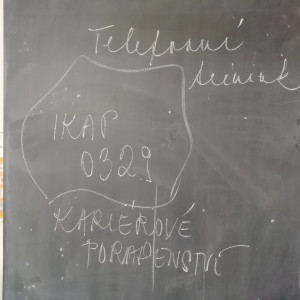 Telefonní
IKAP
0329
KARIÉROVÉ
PORADENSTVÍ